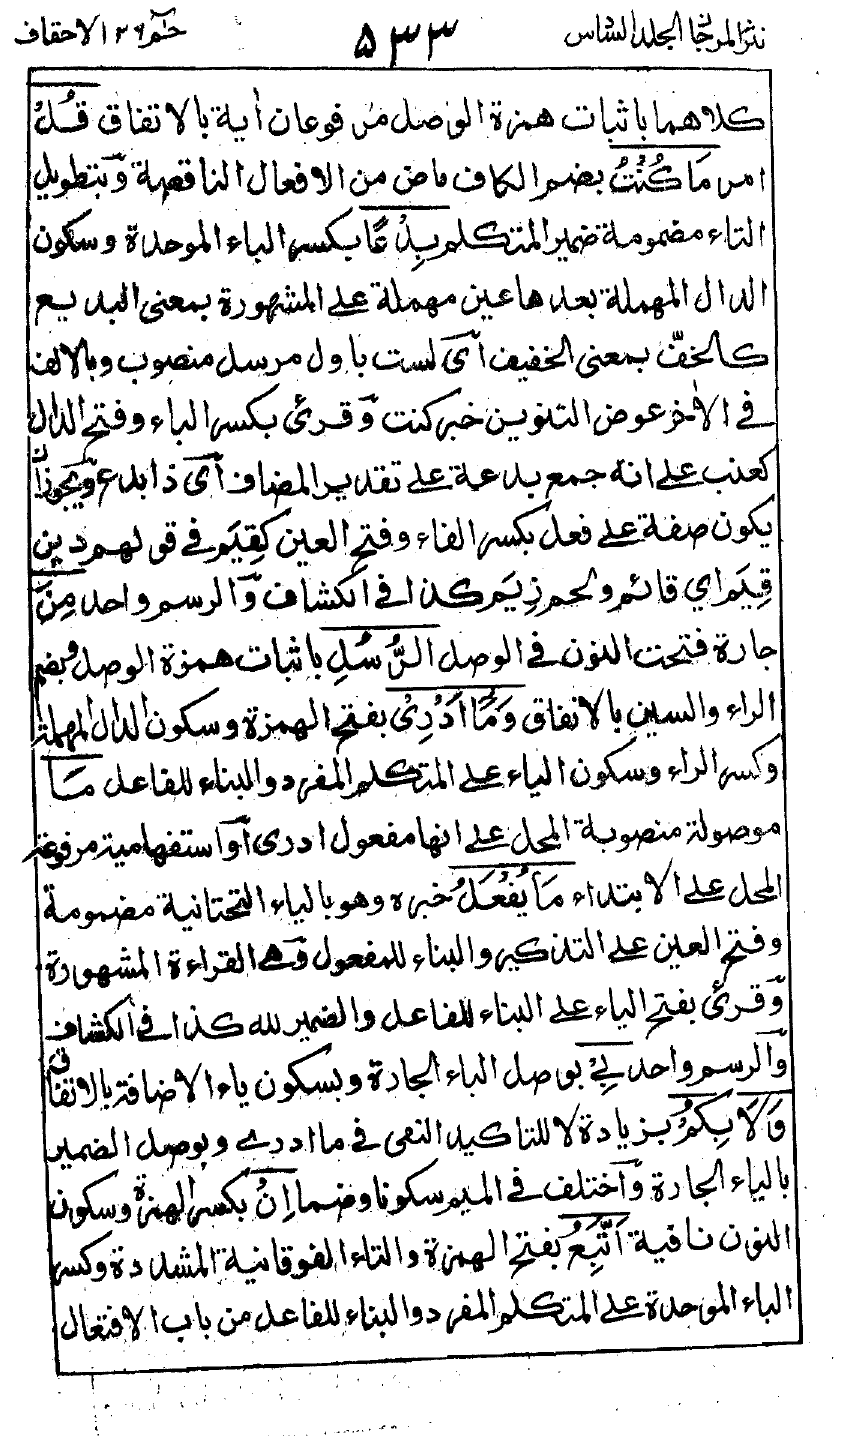 نثر المرجان الجلد السادس ۵۳۳ حٰم ٢٦ الاحقاف
كلاهما باثبات همزة الوصل مرفوعان أية بالاتفاق قُلْ
امر مَا كُنْتُ بضم الكاف ماض من الافعال الناقصة وبتطويل
التاء مضمومة ضمير المتكلم بِدْعًا بكسر الباء الموحدة وسكون
الدال المهملة بعدها عين مهملة على المشهورة بمعنى البديع
كالخفّ بمعنى الخفيف أى لست باول مرسل منصوب وبالالف
فى الأخر عوض التنوين خبر كنت وقرئ بكسر الباء وفتح الدال
كعنب على انه جمع بدعة على تقدير المضاف أى ذا بدع ويجوز ان
يكون صفة على فعل بكسر الفاء وفتح العين كَقِيَم فى قولهم دين
قِيَم اي قائم ولحم زِيَم كذا فى الكشاف والرسم واحد مِنَ
جارة فتحت النون فى الوصل الرُّسُلِ باثبات همزة الوصل وبضم
الراء والسين بالاتفاق وَمَا اَدْرِىْ بفتح الهمزة وسكون الدال المهملة
وكسر الراء وسكون الياء على المتكلم المفرد والبناء للفاعل مَا
موصولة منصوبة المحل على انها مفعول ادرى أو استفهامية مرفوعة
المحل على الابتداء مَا يُفْعَلُ خبره وهو بالياء التحتانية مضمومة
وفتح العين على التذكير والبناء للمفعول وهى القراءة المشهورة
وقرئ بفتح الياء على البناء للفاعل والضمير لله كذا فى الكشاف
والرسم واحد بِىْ بوصل الباء الجارة وبسكون ياء الاضافة بالاتفاق
وَلَا بِكُمْ بزيادة لا للتاكيد النفى فى ما ادرے وبوصل الضمير
بالباء الجارة واختلف فى الميم سكونا وضما اِنْ بكسر الهمزة وسكون
النون نافية اَتَّبِعُ بفتح الهمزة والتاء الفوقانية المشددة وكسر
الباء الموحدة على المتكلم المفرد والبناء للفاعل من باب الافتعال